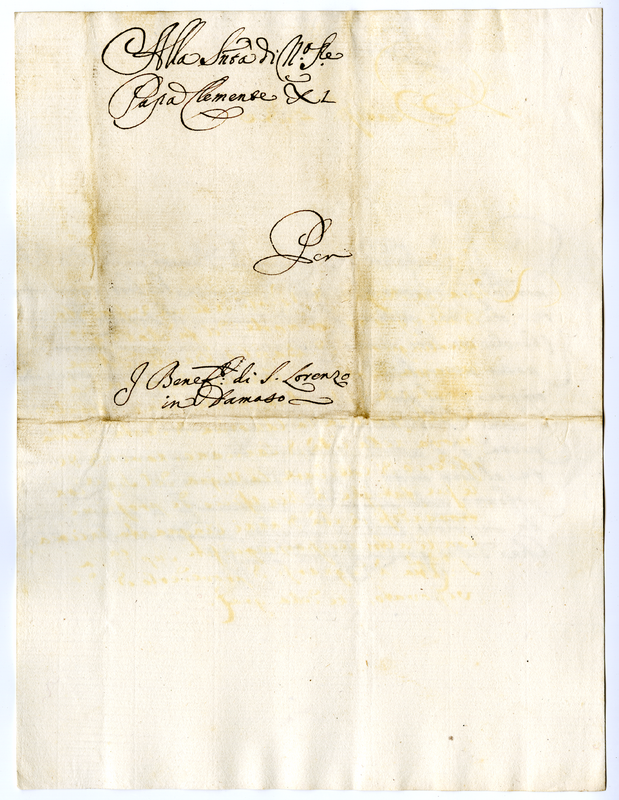 Alla Sntà di N.o Sre
Papa Clemente XI
Per
I Benef.ti di S. Lorenzo
in Damaso